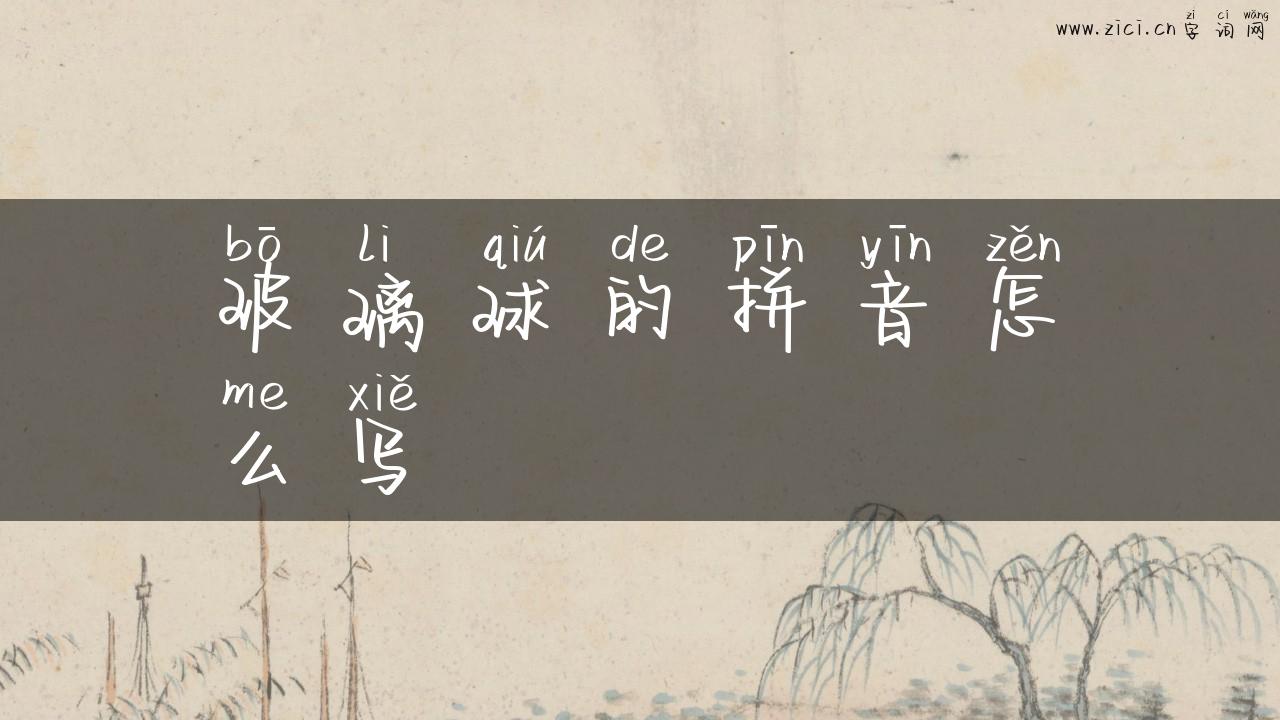 zì cí wǎng
www.zici.cn 字 词 网
bō li qiú de pīn yīn zěn
玻 璃 球 的 拼 音 怎
me xiě
么 写